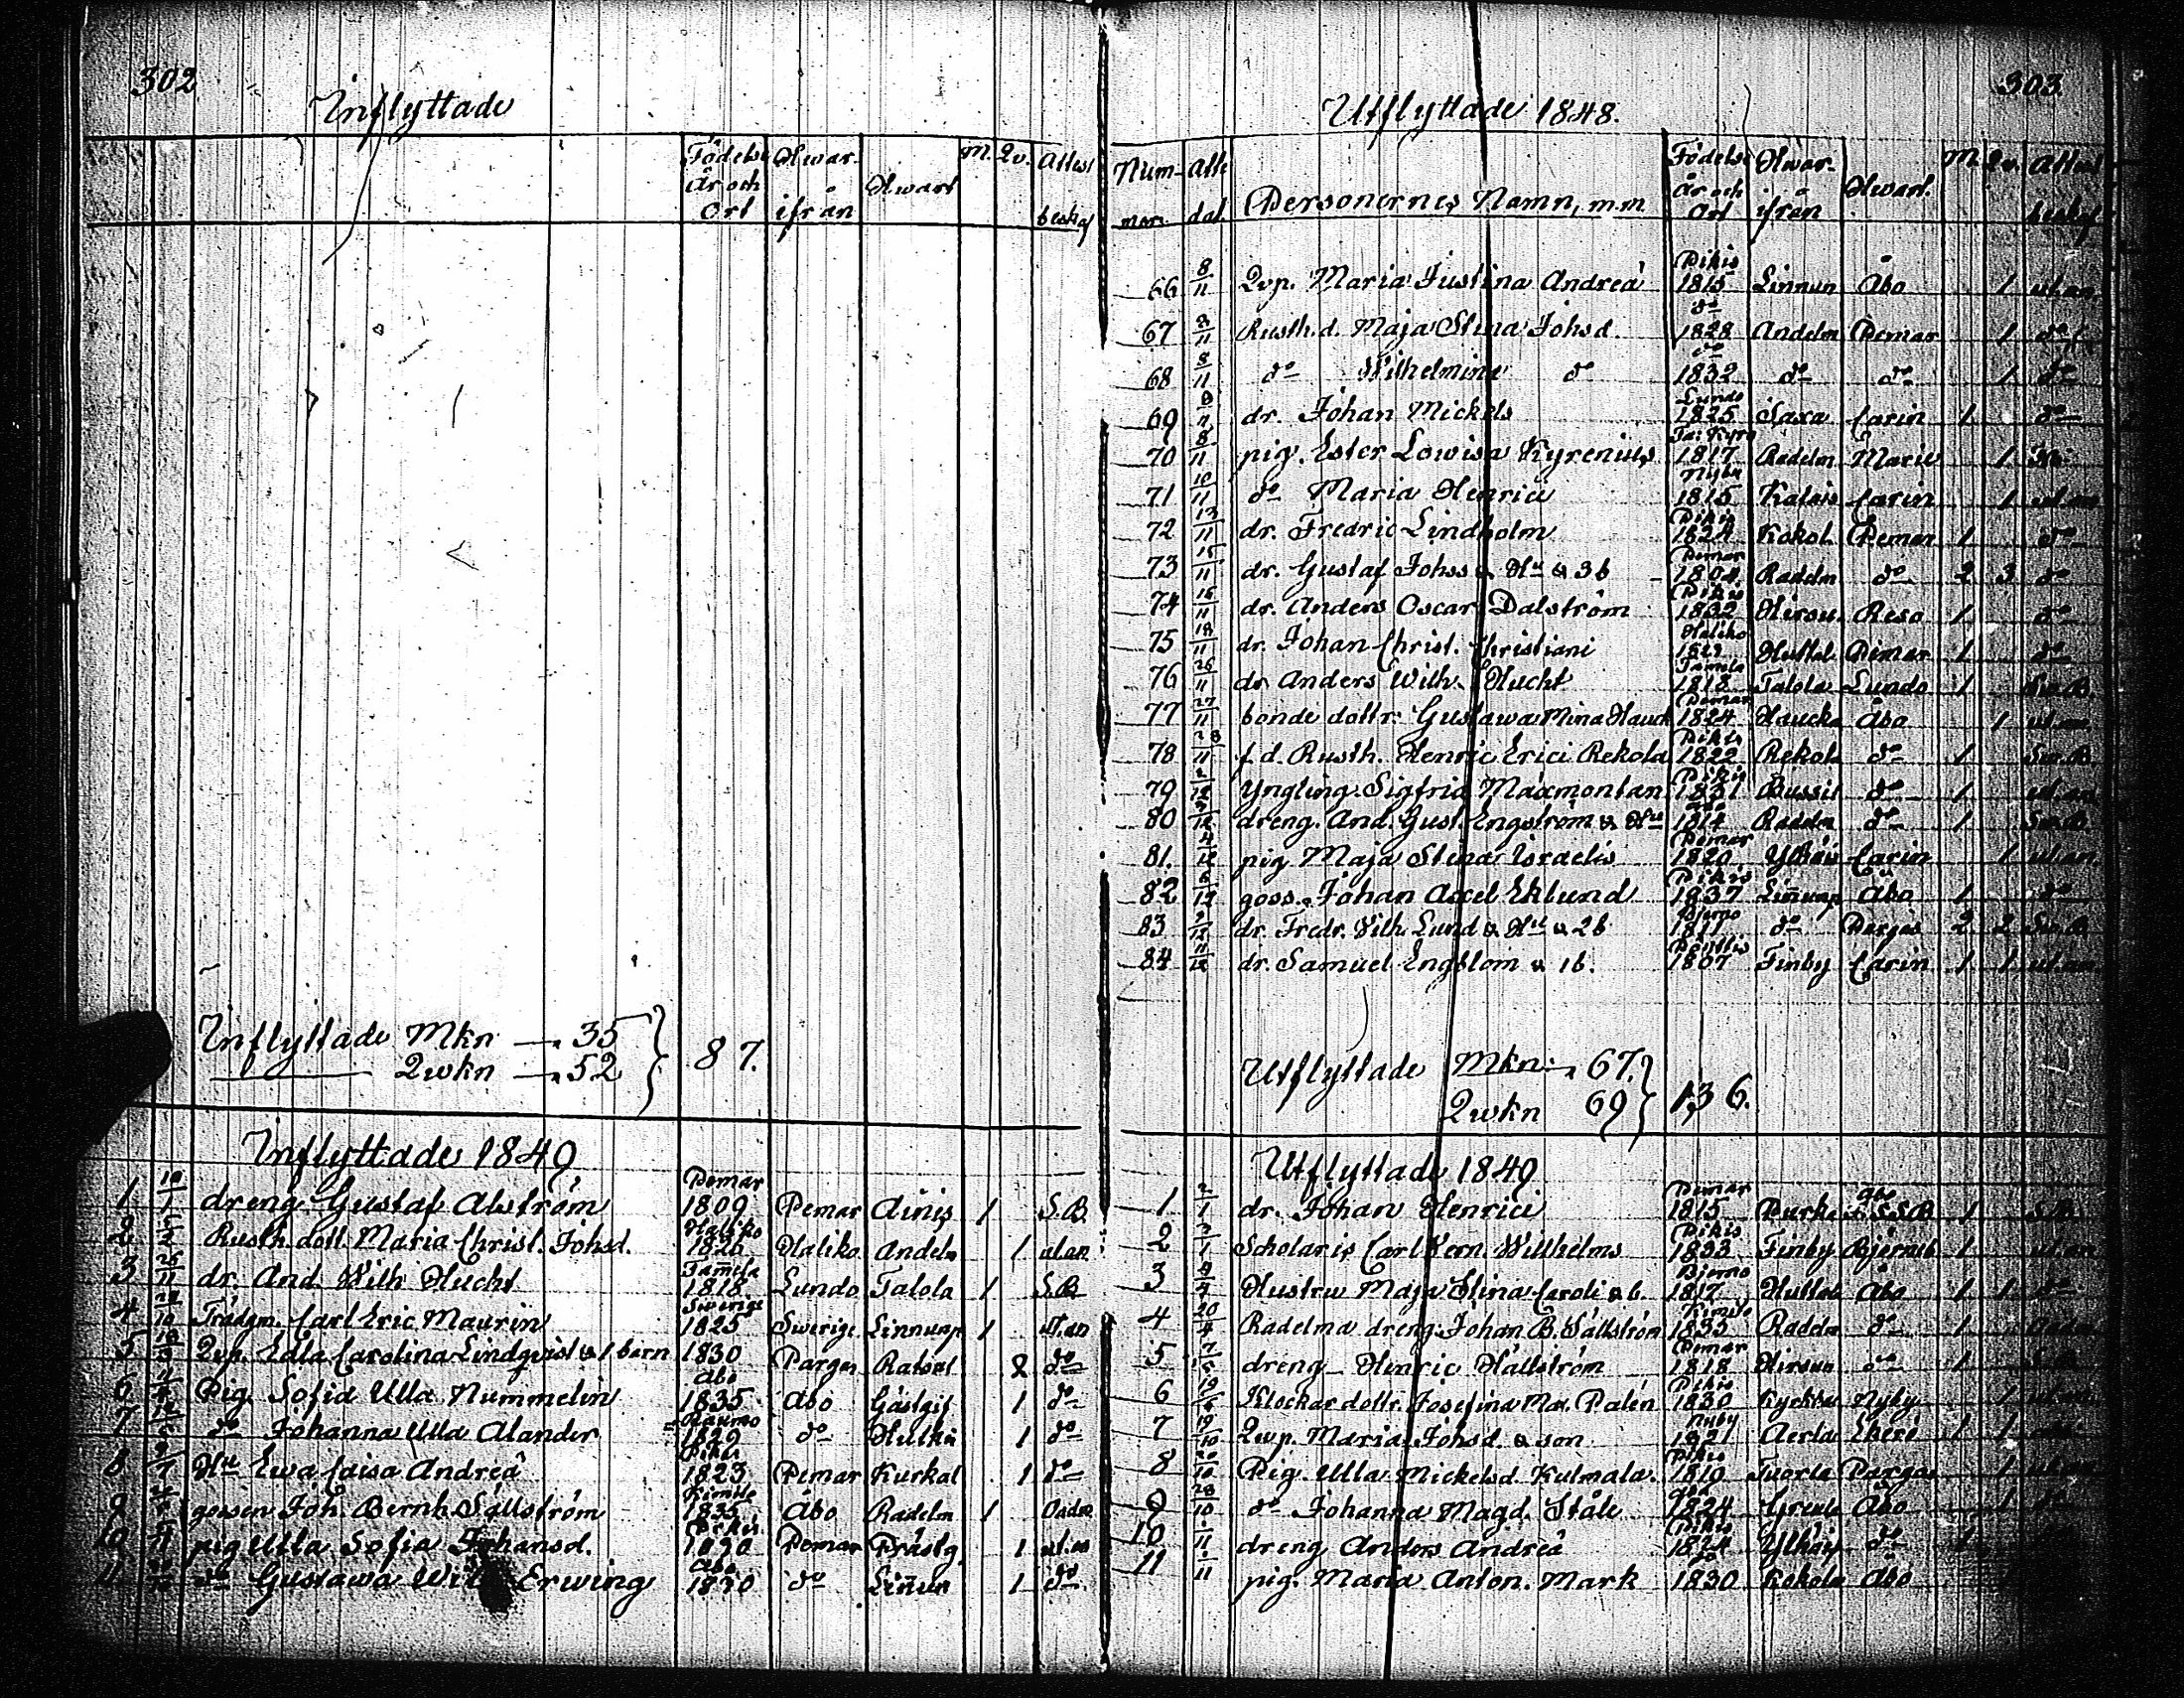 302
Inflyttade
Födelse År och Ort
Hwar ifrån
Hwart
M.
Qv.
Attest beskaf
Inflyttade Mkn 35
Qwkn 52 } 87.
Inflyttade 1849
1 10/1 dreng Gustaf Alström Pemar 1809 Pemar Ainis 1 S.B.
2 Rusth. dott. Maria Christ. Johsd. Haliko 1826 Haliko Andeln 1 utan
3 25/11 dr. And. Wilh Hucht Tamela 1818 Lundo Talola 1 S.B.
4 Trädgm. Carl Eric Maurin Swerige 1825 Swerige Linnunp 1 utan
5 Qvp. Edla Carolina Lindqvist & 1 barn 1830 Pargas 2 do
6 Pig. Sofia Ulla Nummelin Abo 1835 Abo Gästgif 1 do
7 do Johanna Ulla Alander Raumo 1829 do 1 do
8 Hu Ewa Caisa Andreä Pikis 1823 Pemar Kurkal 1 do
9 gossen Joh. Bernh. Sällström Kimito 1835 Åbo Radelm 1
10 pig Ulla Sofia Johansd. Pikis 1830 Pemar Prästg. 1 utan
11 do Gustawa Erwing Åbo 1830 do Linnun 1 do
303
Utflyttade 1848.
Nummer
Atte dat.
Personernes Namn, m.m.
Födelse År och Ort
Hwar ifrån
Hwart.
M
Qv.
Attest beskaf
66 8/11 Qvp. Maria Justina Andreä Pikis 1815 Linnun Åbo 1 utan
67 8/11 Rusth.d. Maja Stina Johsd. do 1828 Andeln Pemar 1 do
68 8/11 do Wilhelmina do do 1832 do do 1 do
69 8/11 dr. Johan Mickels Lundo 1825 Saxa Carin 1 do
70 8/11 pig. Ester Lowisa Kyrenius 1817 Radelm Marie 1
71 10/11 do Maria Henrici Nyby 1815 Carin 1 utan
72 13/11 dr. Fredric Lindholm Pikis 1824 Kokol. Pemar 1 do
73 15/11 dr. Gustaf Johss & Hu & 3 b Pemar 1804 Radelm do 2 3 do
74 16/11 dr. Anders Oscar Dalström Pikis 1832 Hirsu. Reso 1 do
75 18/11 dr. Johan Christ. Christiani Haliko Huttal. Pemar 1 do
76 25/11 dr Anders Wilh. Hucht Tamela 1818 Talola Lundo 1 Sw.B.
77 27/11 bonde dottr. Gustawa Mina Hauck Pemar 1824 Haucka Åbo 1 utan
78 28/11 f.d. Rusth. Henric Erici Rekola Pikis 1822 Rekola do 1 Sw.B
79 2/12 Yngling. Sigfrid Maxmontan Pikis 1831 Bussil do 1 utan
80 dreng. And. Gust. Engström & Hu Åbo 1814 Radelm do 1 Sw.B
81. 4/12 pig Maja Stina Israelis Pemar 1820 Carin 1 utan
82 goss. Johan Axel Eklund Pikis 1837 Linnunp Åbo 1 do
83 9/12 dr. Fredr. Wilh. Lund & Hu & 2 b Bjerno 1811 do Pargas 2 2 Sw.B
84 11/12 dr. Samuel Engblom & 1 b. 1807 Finby Carin 1 1 utan
Utflyttade Mkn: 67.
Qwkn 69 } 136.
Utflyttade 1849
1 2/1 dr. Johan Henrici Pemar 1815 Åbo S.S.B. 1 S.B.
2 2/1 Scholaris Carl Wern. Willhelms Pikis 1833 Finby Bjerneb. 1 utan
3 Hustru Maja Stina Caroli & b. Bjerno 1817 Huttal Åbo 1 1 do
4 20/4 Radelma dreng. Johan B. Sällström Kimito 1835 Radelm do 1
5 dreng Henric Hällström Pemar 1818 Hirsun do 1 S.B.
6 Klockar dottr. Josefina Mar. Palén Pikis 1830 Nyby 1 utan
7 19/10 Qvp. Maria Johsd. & son Nyby 1821 Aerla 1 1
8 Pig. Ulla Mickelsd. Kulmala. Pikis 1810 Tuorla Pargas 1 utan
9 28/10 do Johanna Magd. Ståle Åbo 1824 Åbo 1 do
10 dreng Anders Andreä Pikis 1824 do 1
11 pig. Maria Anton. Mark 1830 Kokola Åbo